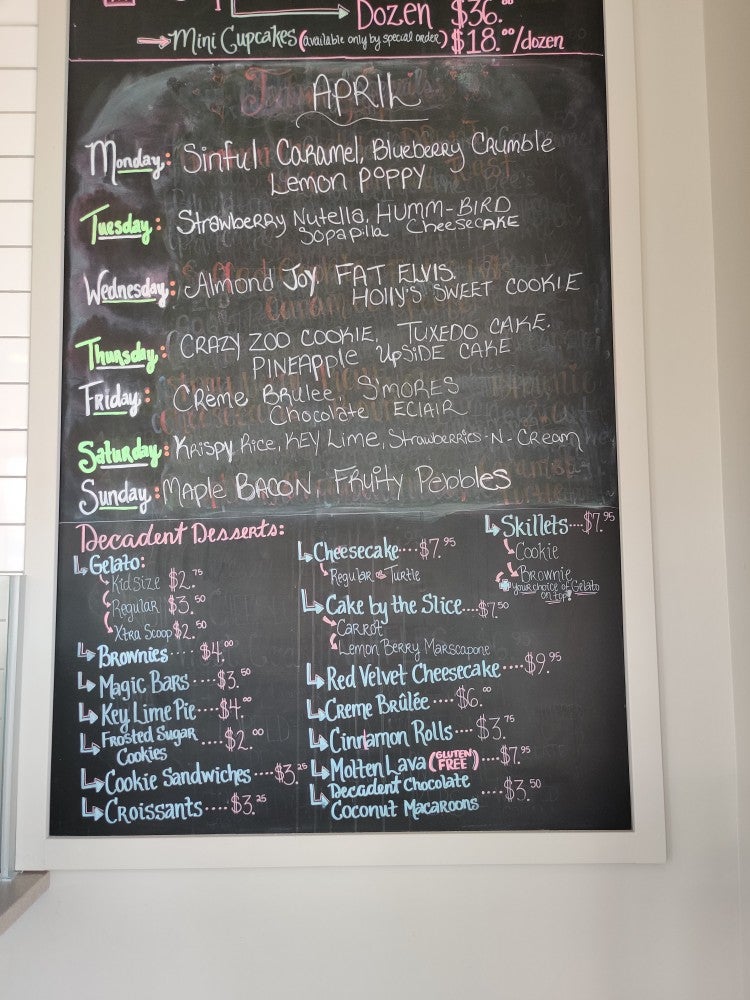 Dozen $36.00
Mini Cupcakes (available only by special order) $18.00/dozen
APRIL
Monday: Sinful Caramel, Blueberry Crumble
Lemon Poppy
Tuesday: Strawberry Nutella, HUMM-BIRD
Sopapila Cheesecake
Wednesday: Almond Joy. FAT ELVIS.
HOLLY'S SWEET COOKIE
Thursday: CRAZY ZOO COOKIE, TUXEDO CAKE.
PINEAPPLE UPSIDE CAKE
Friday: Creme Brulee, S'MORES
Chocolate ECLAIR
Saturday: Krispy Rice, Key Lime, Strawberries-N-Cream
Sunday: Maple BACON Fruity Pebbles
Decadent Desserts:
Gelato:
Kid Size $2.75
Regular $3.50
Xtra Scoop $2.50
Brownies .... $4.00
Magic Bars .... $3.50
Key Lime Pie .... $4.00
Frosted Sugar
Cookies .... $2.00
Cookie Sandwiches .... $3.25
Croissants .... $3.25
Cheesecake .... $7.95
Regular or Turtle
Cake by the Slice .... $7.50
Carrot
Lemon Berry Marscapone
Red Velvet Cheesecake .... $9.95
Creme Brûlée .... $6.00
Cinnamon Rolls .... $3.75
Molten Lava (GLUTEN FREE) .... $7.95
Decadent Chocolate
Coconut Macaroons .... $3.50
Skillets .... $7.95
Cookie
Brownie
your choice of Gelato
on top!